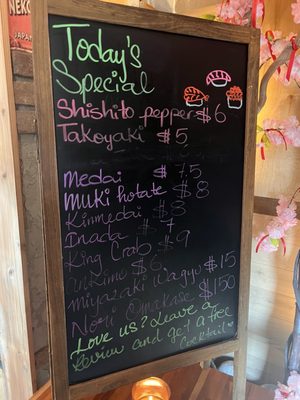 NEKO
JAPAN
Today's
Special
Shishito pepper $6
Takoyaki $5
Medai $7.5
Muki hotate $8
Kinmedai $8
Inada $7
King Crab $9
Uni Lime $6
Miyazaki Wagyu $15
Nori Omakase $150
Love us? Leave a
Review and get a free
Cocktail